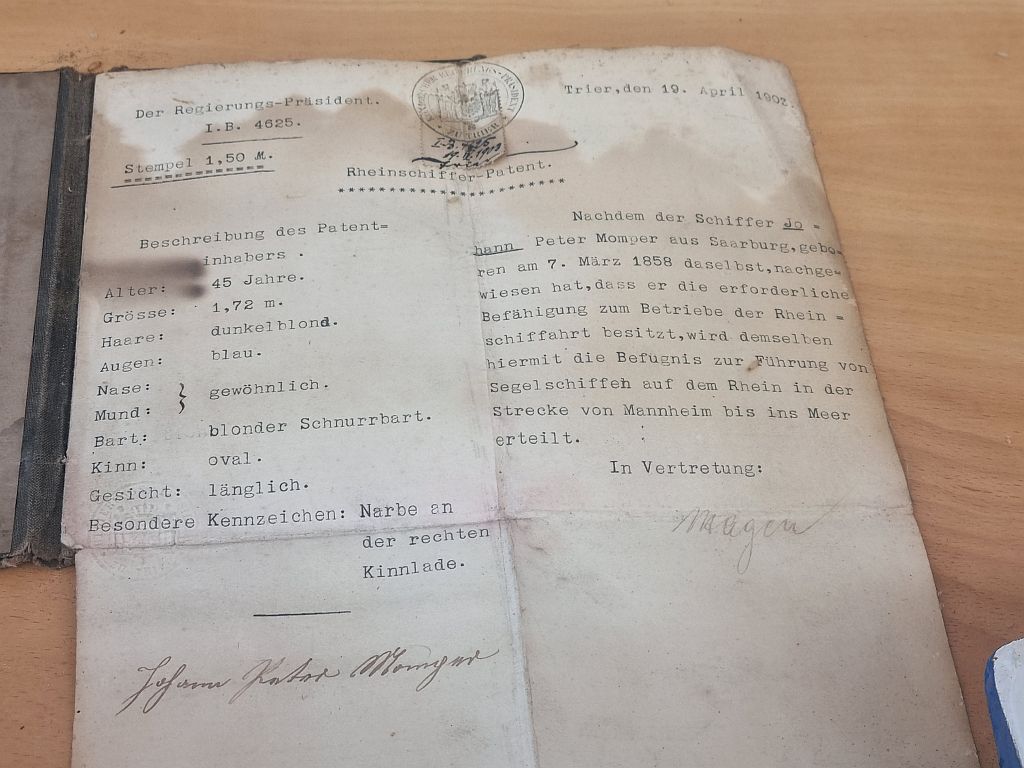 Der Regierungs-Präsident.
I.B. 4625.
Stempel 1,50 M.
Trier,den 19. April 1902.
Rheinschiffer-Patent.
Beschreibung des Patent=
inhabers .
Alter: 45 Jahre.
Grösse: 1,72 m.
Haare: dunkelblond.
Augen: blau.
Nase: } gewöhnlich.
Mund:
Bart: blonder Schnurrbart.
Kinn: oval.
Gesicht: länglich.
Besondere Kennzeichen: Narbe an
der rechten
Kinnlade.
Johann Peter Momper
Nachdem der Schiffer Jo =
hann Peter Momper aus Saarburg,gebo-
ren am 7. März 1858 daselbst,nachge=
wiesen hat,dass er die erforderliche
Befähigung zum Betriebe der Rhein =
schiffahrt besitzt,wird demselben
hiermit die Befugnis zur Führung von
Segelschiffen auf dem Rhein in der
Strecke von Mannheim bis ins Meer
erteilt.
In Vertretung: